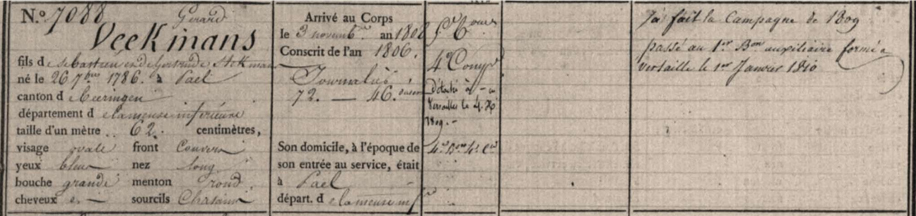 N.° 7088 Girard
Veekmans
fils d e Sebastien et de Gertrude
né le 26 7bre 1786. à Pael
canton d e Beeringen
département d e la meuse inférieure
taille d'un mètre .. 62. centimètres,
visage ovale front Couvert
yeux bleus nez long
bouche grande menton rond
cheveux et — sourcils Chatains
Arrivé au Corps
le 3 novembre an 1806
Conscrit de l'an 1806.
Journalier
72. — 46.
Son domicile, à l'époque de
son entrée au service, était
à Pael
départ. d e la meuse inf
4e Comp
Détaché à
Versailles le
1809. —
4e Bon 4e Cie
J'ai fait la Campagne de 1809
passé au 1er Bon auxiliaire formé à
Versaille le 1er Janvier 1810